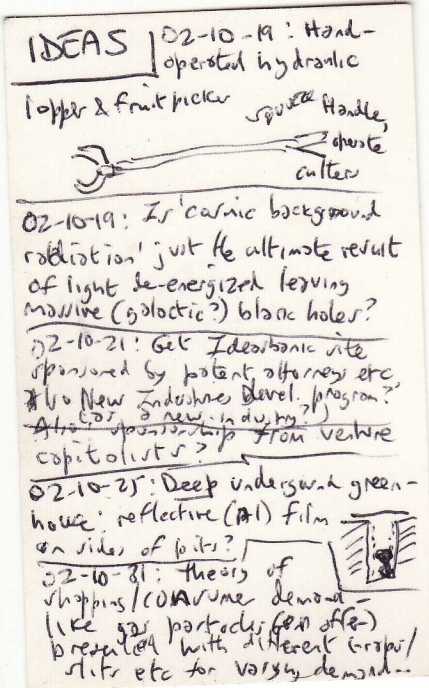 IDEAS
02-10-19: Hand-
operated hydraulic
lopper & fruit picker
squeeze Handle,
operate
cutters
02-10-19: Is 'cosmic background
radiation' just the ultimate result
of light de-energized leaving
massive (galactic?) black holes?
02-10-21: Get Ideasbank site
sponsored by patent attorneys etc
Also New Industries Devel. program?
(as a new industry?)
Also sponsorship from venture
capitolists?
02-10-25: Deep underground green-
house: reflective (Al) film
on sides of pits?
02-10-31: theory of
shopping/consumer demand -
like gas particles (en offer)
presented with different
slits etc for varying demand...